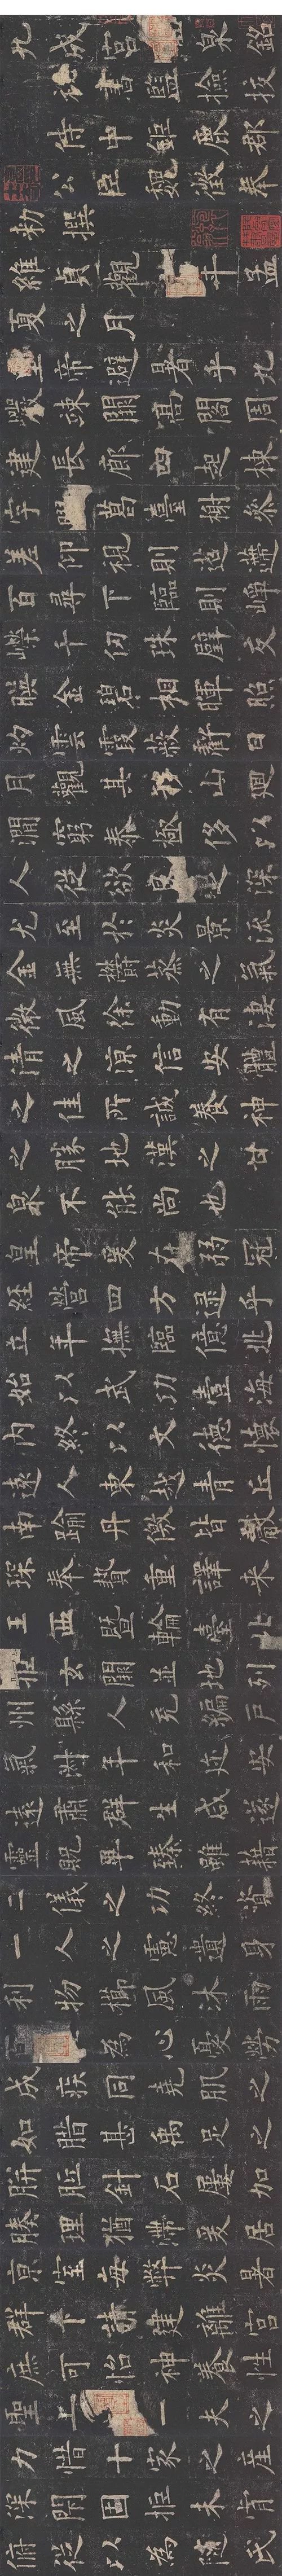 九成宮泉銘
秘書監撿挍
侍中鉅鹿郡
公臣魏徵奉
勑撰
維貞觀年孟
夏之月
皇帝避暑乎九
巖竦闕高閣周
建長廊四起棟
宇葛臺榭參
差仰視則迢遰
百尋下臨則崢
嶸千仞珠璧交
暎金碧相暉照
灼雲霞蔽虧日
月觀其移山迴
澗窮泰極侈以
人從欲足深
尤至於炎景流
金無鬱蒸之氣
微風徐動有淒
清之涼信安體
之佳所誠養神
之勝地漢之甘
泉不能尚也
皇帝爰在弱冠
經營四方逮乎
立年撫臨億兆
始以武功壹海
內終以文德懷
遠人東越青丘
南踰丹徼皆獻
琛奉贄重譯來
王西暨輪臺北
拒玄闕並地列
州縣人充編戶
氣淑年和迩安
遠肅群生咸遂
靈貺畢臻雖藉
二儀之功終資
一人之慮遺身
利物櫛風沐雨
百為心憂勞
成疾同堯肌之
如腊甚禹足之
胼胝針石屢加
腠理猶滯爰居
京室每弊炎暑
群下請建離宮
庶可怡神養性
聖一夫之
力惜十家之產
深閉固拒未肯
俯從以為隨氏